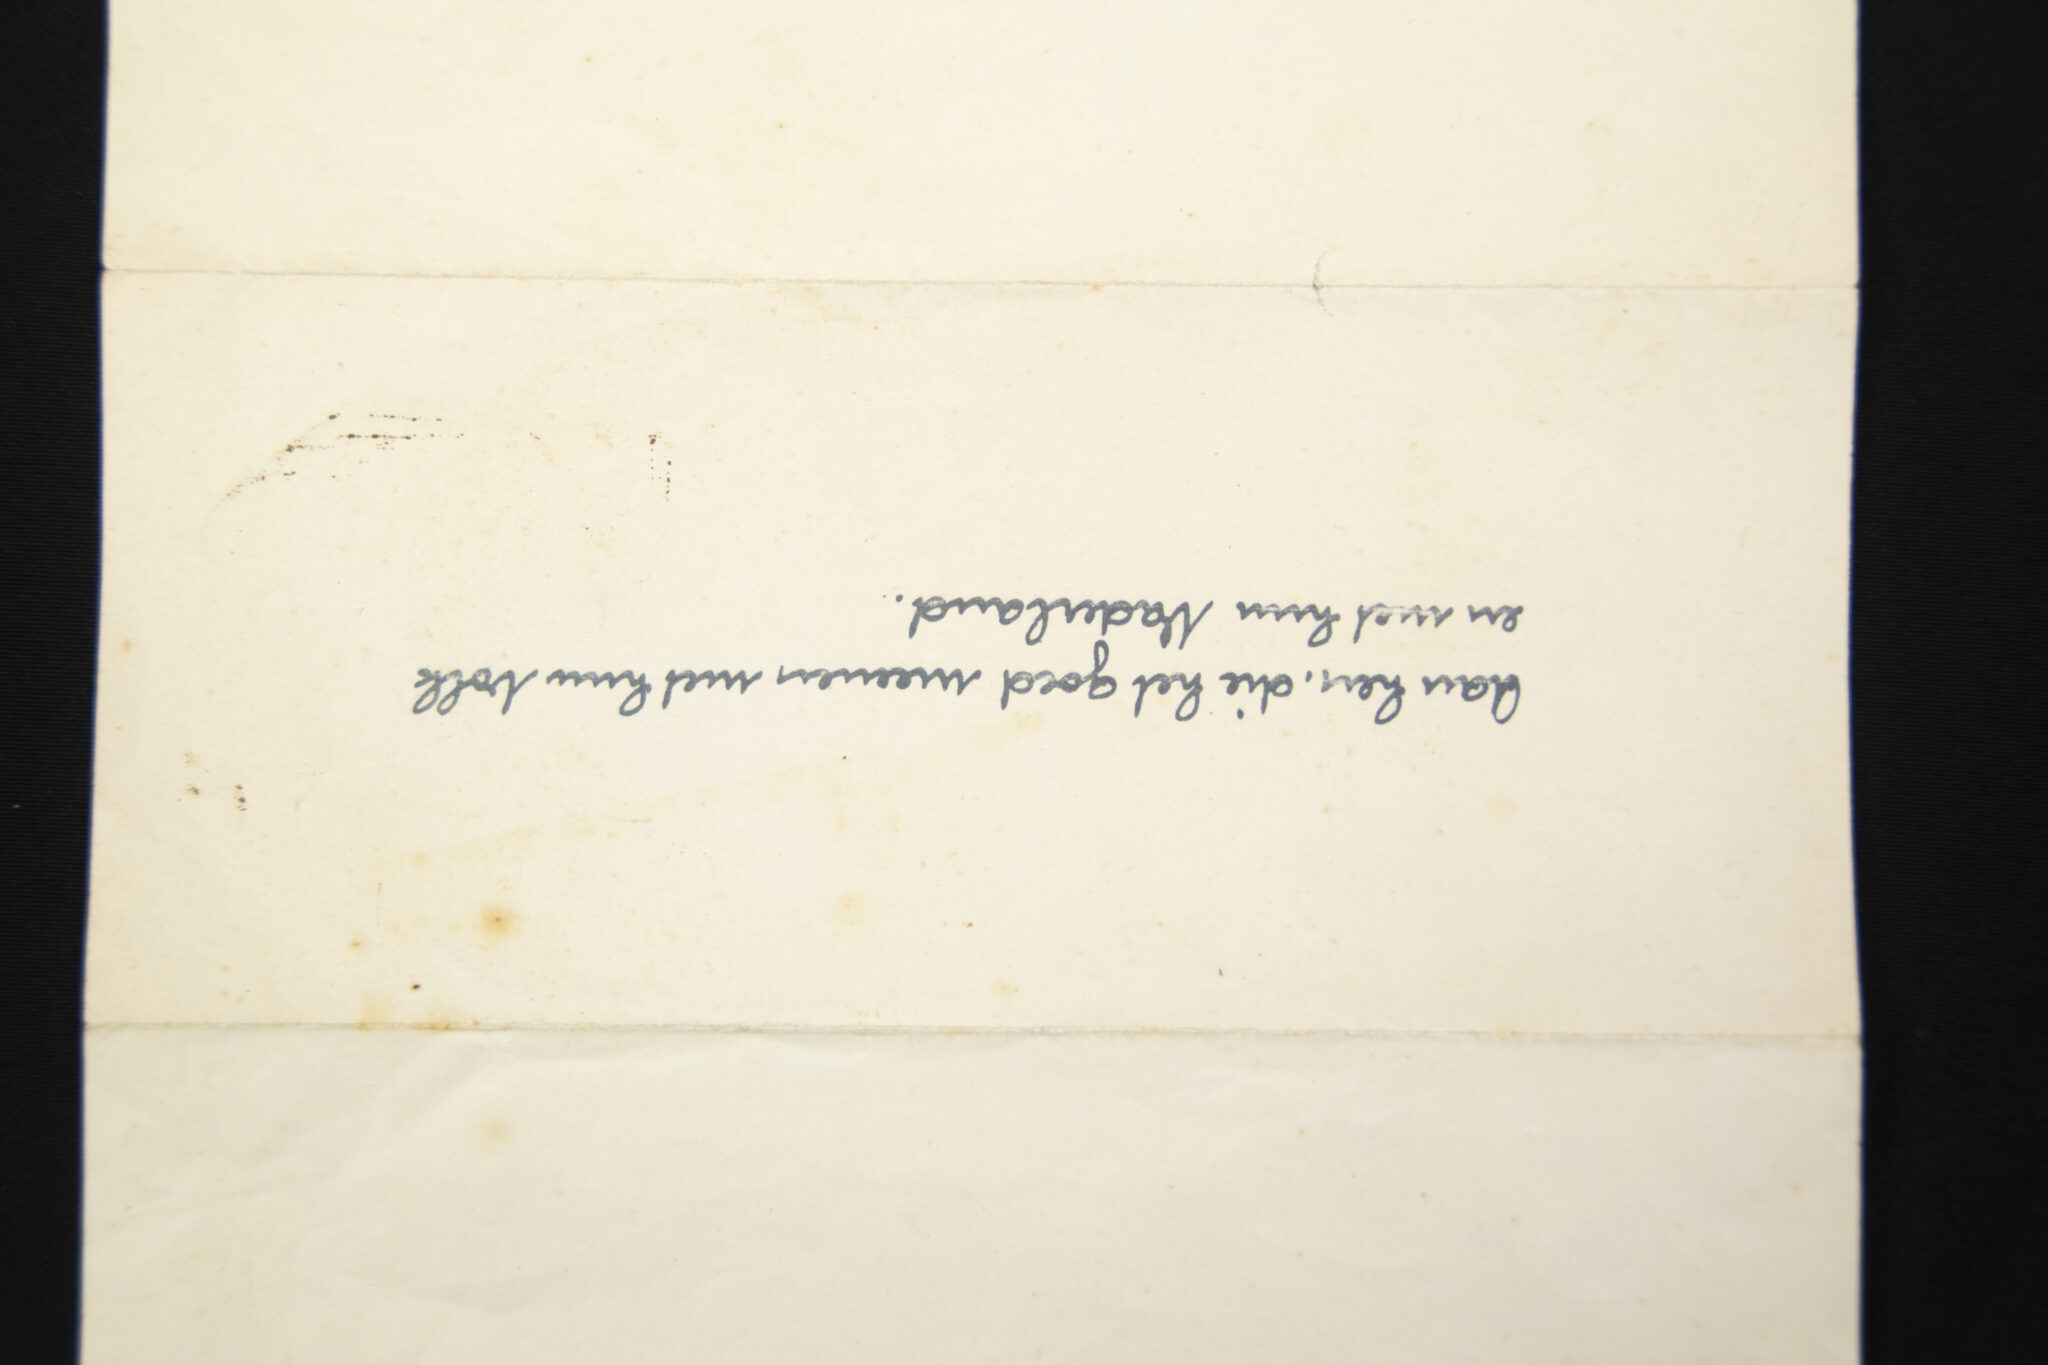 Aan hen, die het goed meenen met hun Volk
en met hun Vaderland.